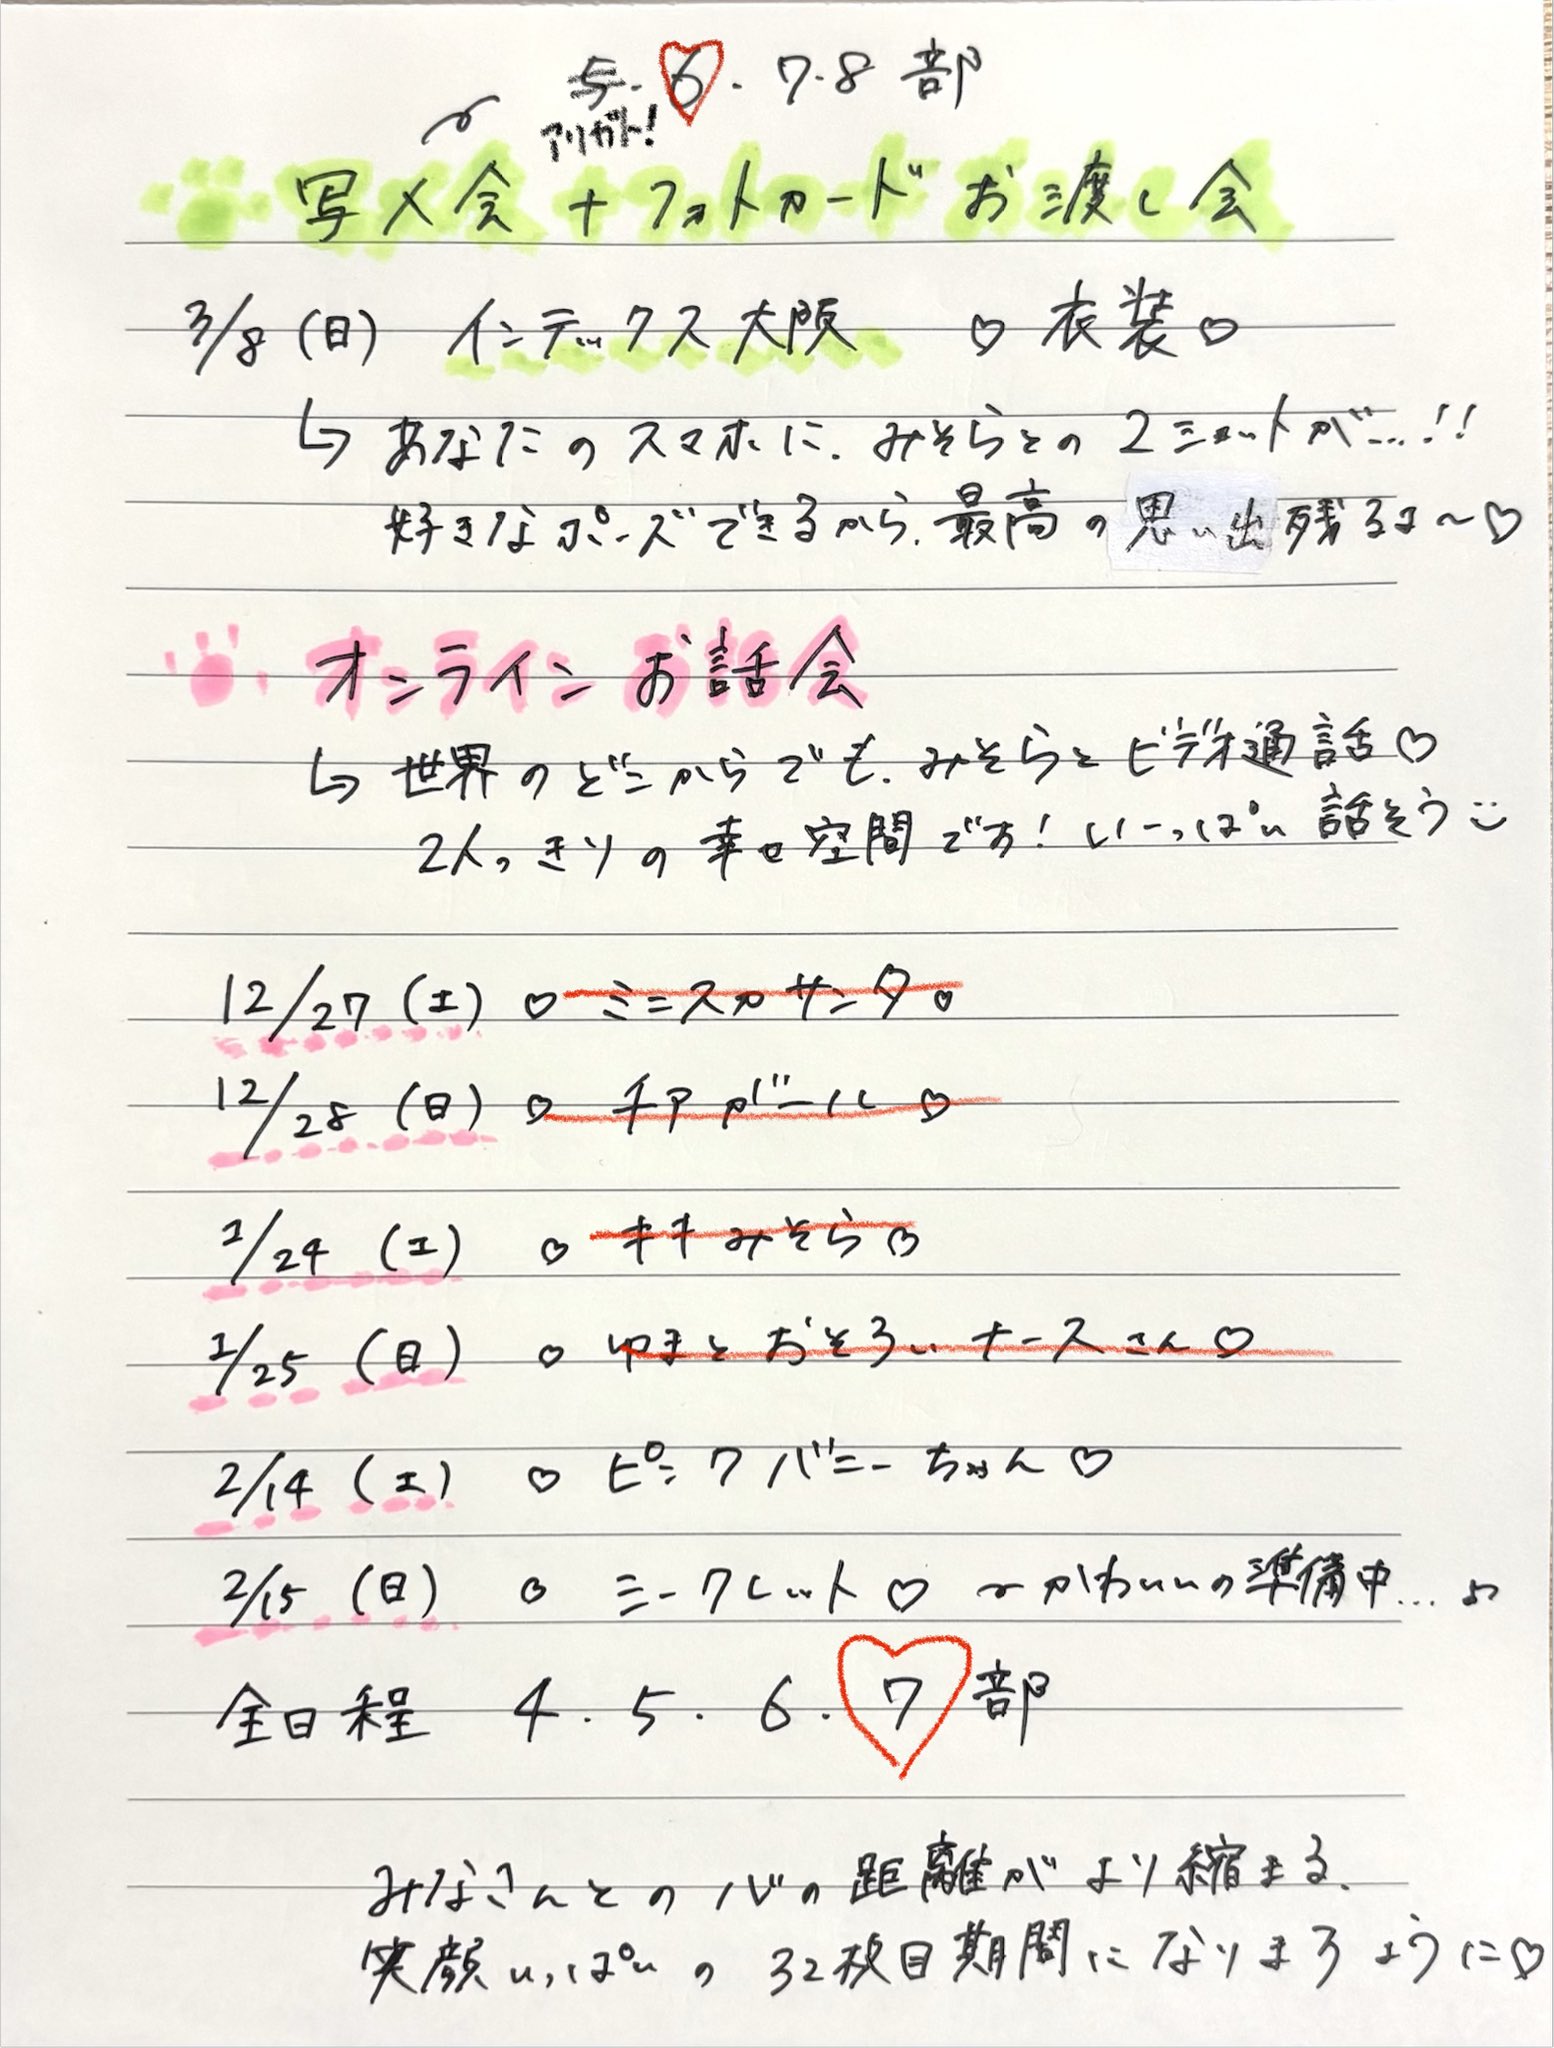 5.6.7.8部
アリガト!
写メ会+フォトカードお渡し会
3/8(日) インデックス大阪 ♡衣装♡
↳ あなたのスマホに、みそらとの2ショットが...!!
好きなポーズできるから、最高の思い出残るよ〜♡
オンラインお話会
↳ 世界のどこからでも、みそらとビデオ通話♡
2人っきりの幸せ空間です!いーっぱい話そう
12/27(土) ♡ミニスカサンタ♡
12/28(日) ♡チアガール♡
1/24(土) ♡キキみそら♡
1/25(日) ♡ゆきとおそろいナースさん♡
2/14(土) ♡ピンクバニーちゃん♡
2/15(日) ♡シークレット♡ 〜かわいいの準備中...♪
全日程 4.5.6.7部
みなさんとの心の距離がより縮まる、
笑顔いっぱいの32枚目期間になりますように♡